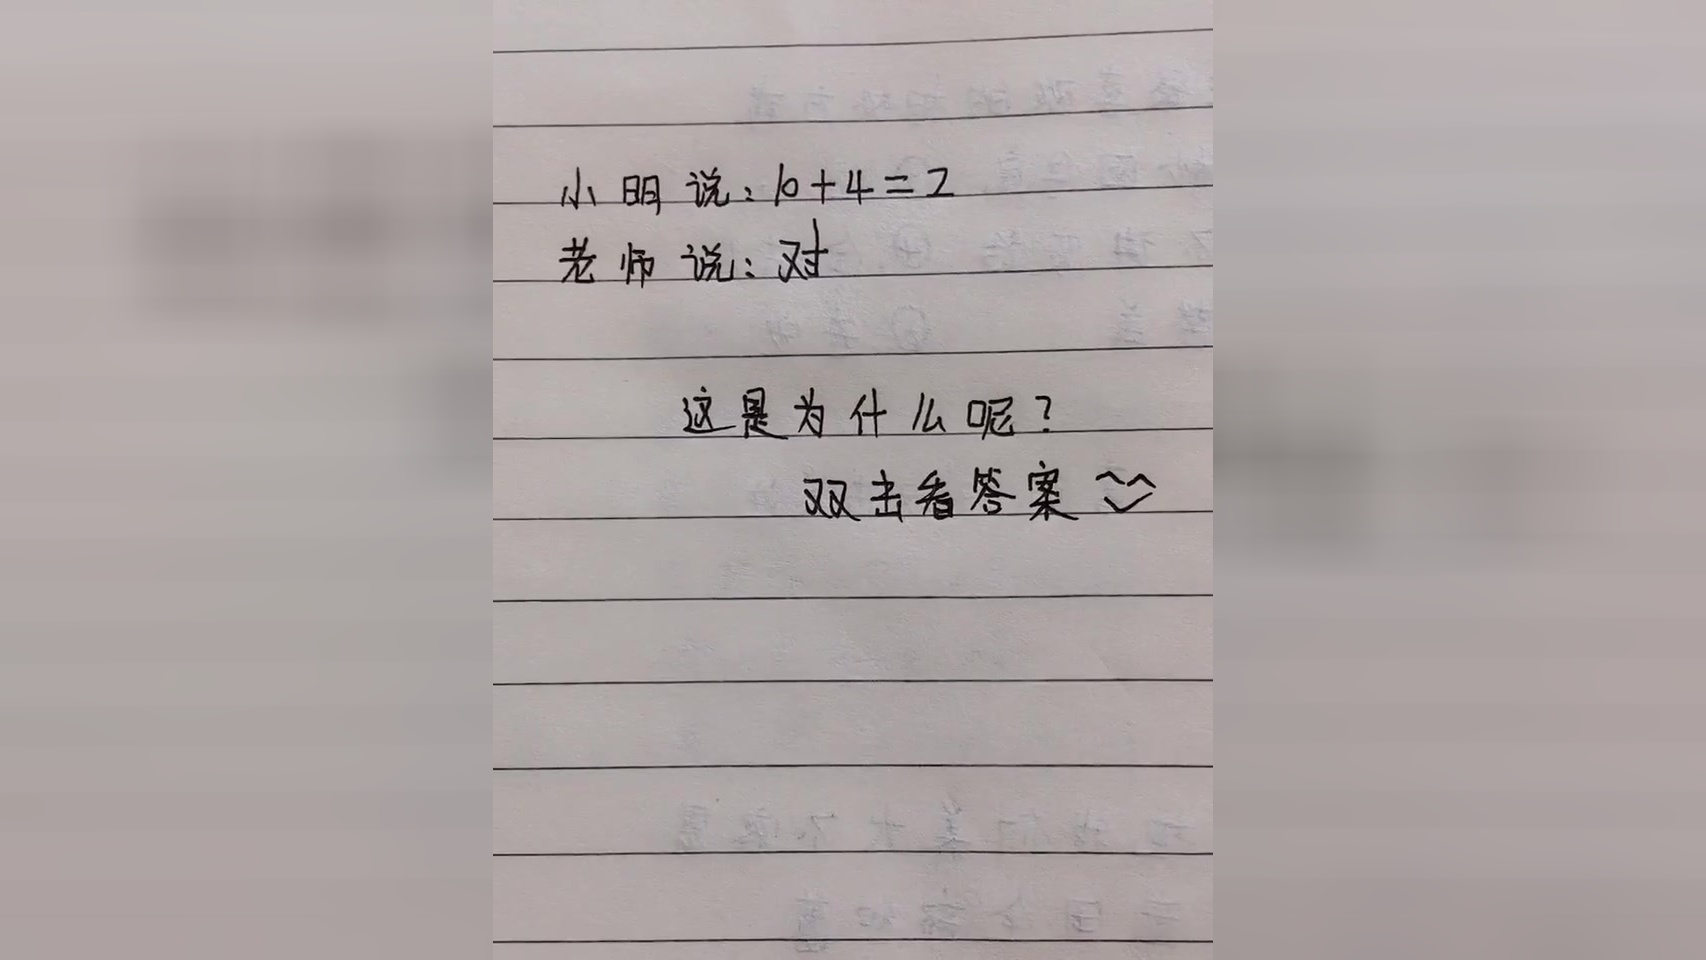 小明说：10+4=2
老师说：对
这是为什么呢？
双击看答案